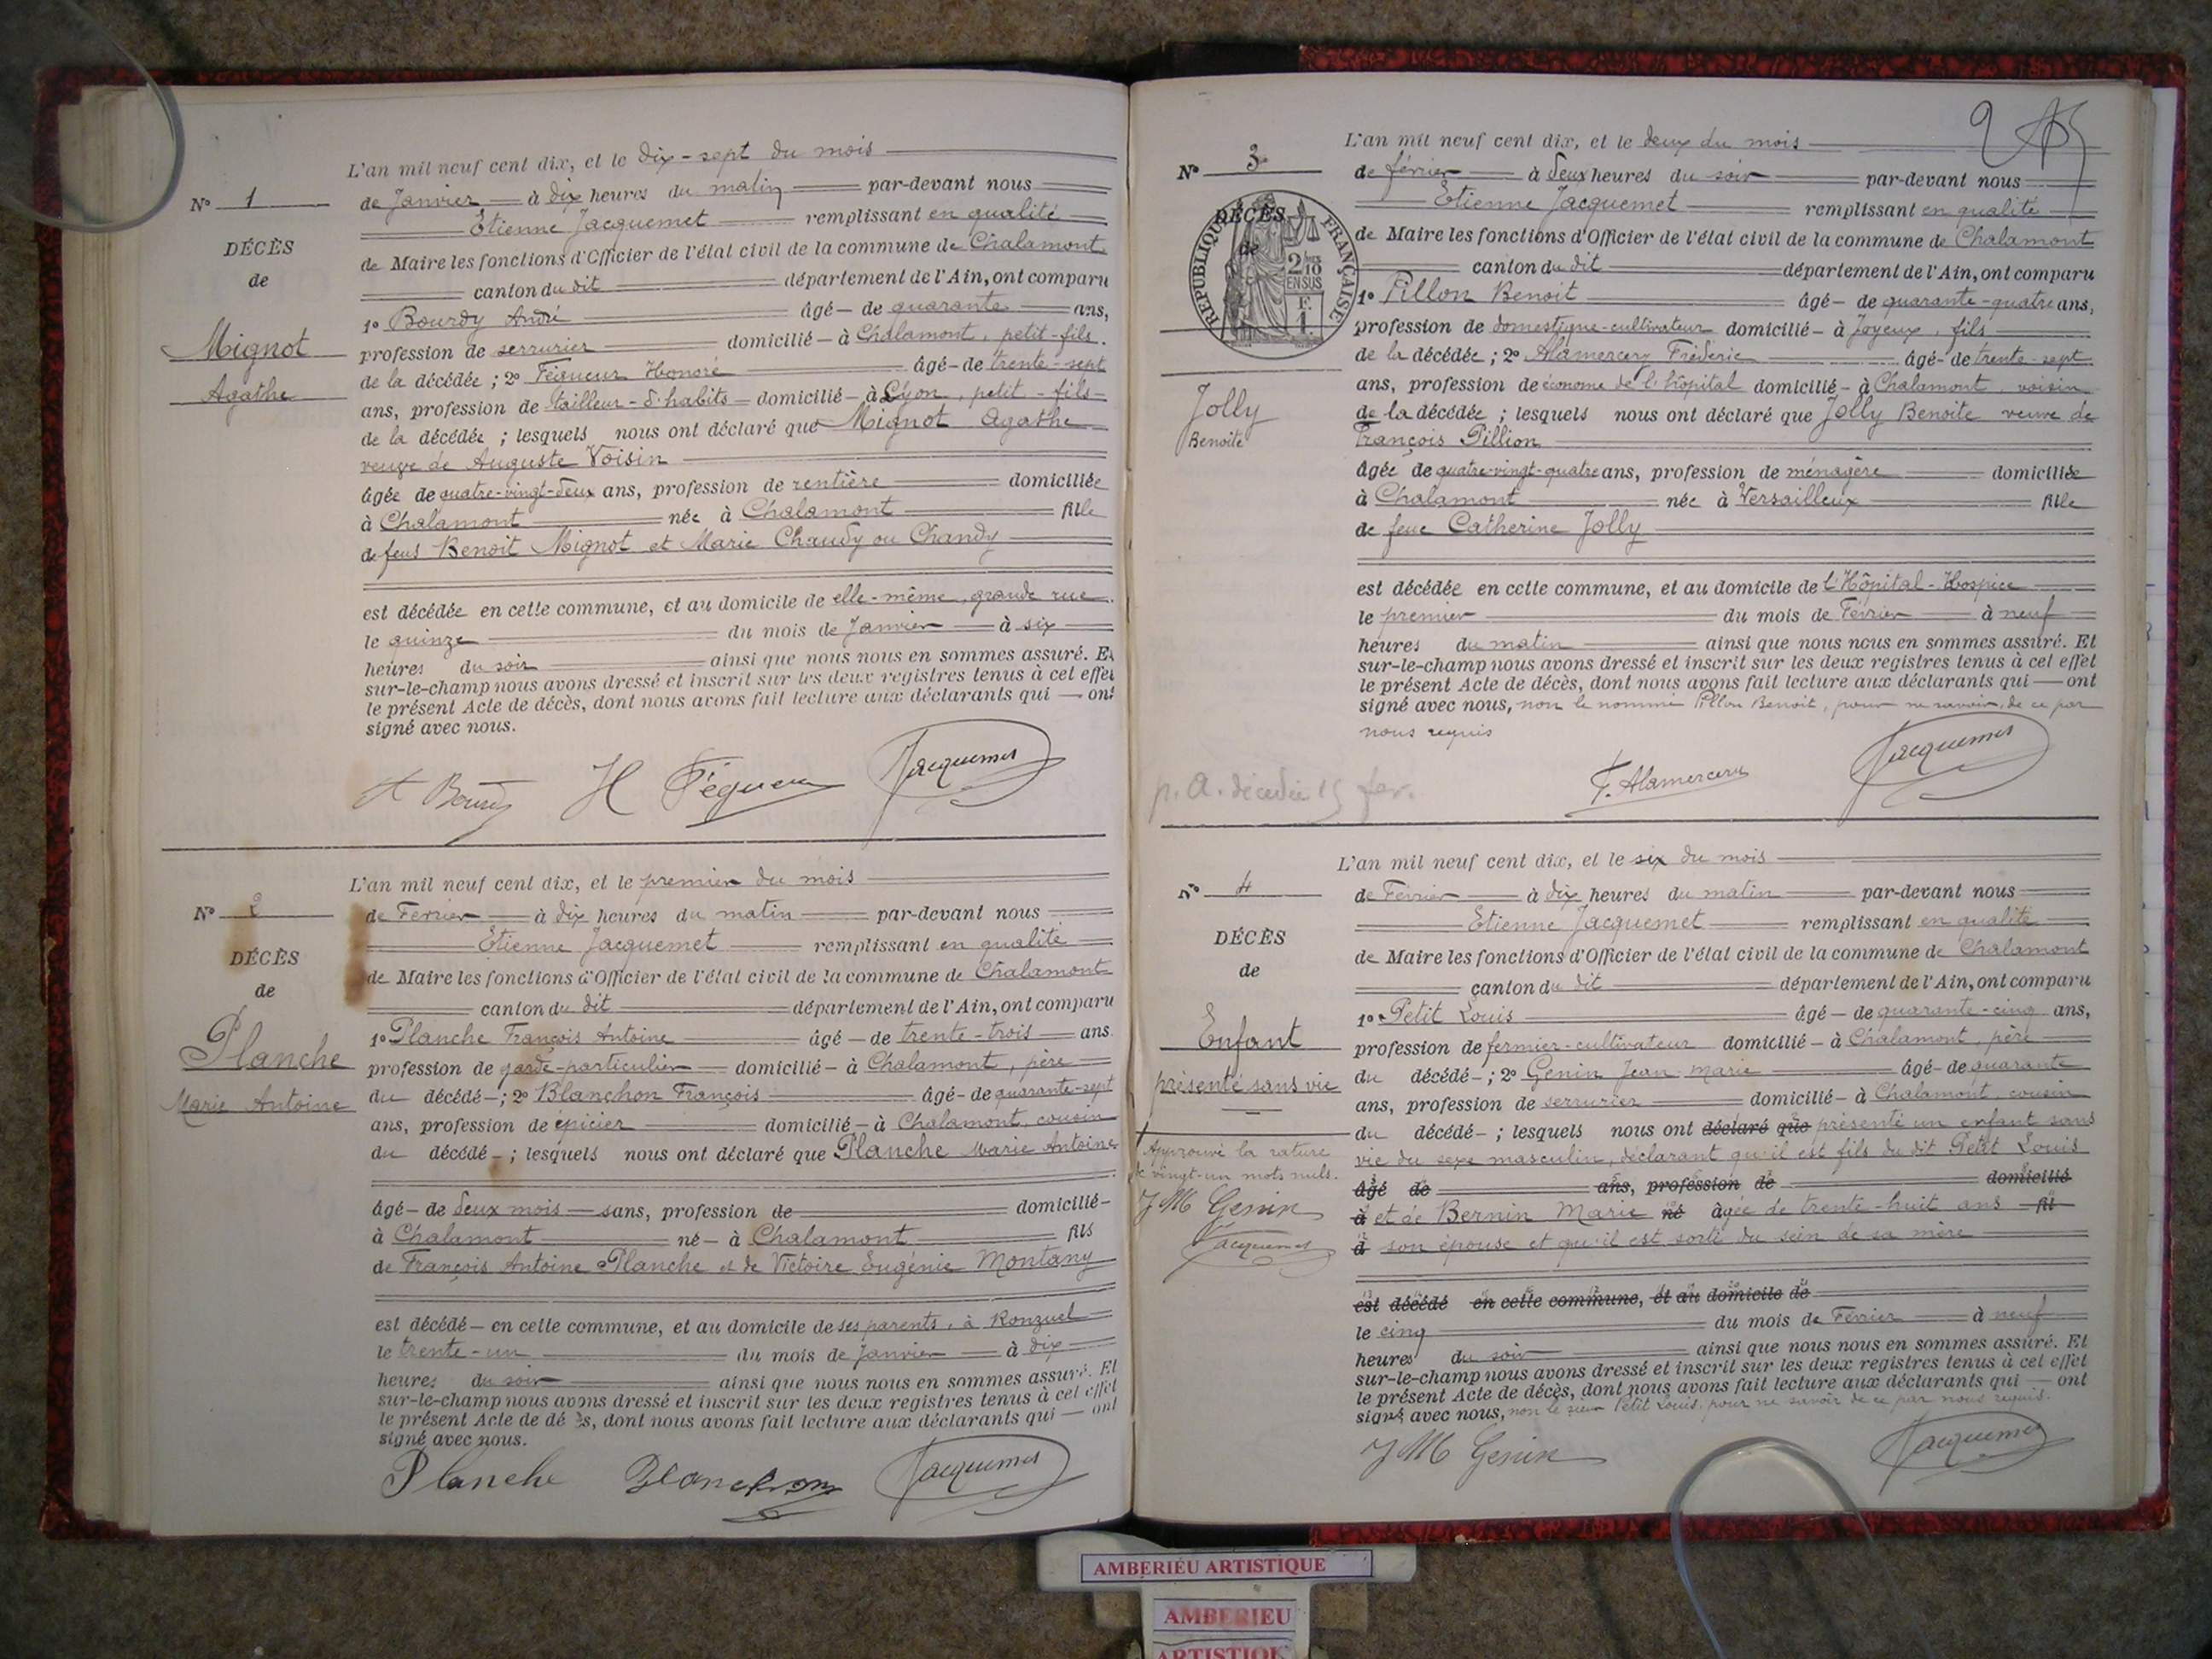 L'an mil neuf cent dix, et le dix-sept du mois
N° 1
de Janvier à dix heures du matin par-devant nous
Etienne Jacquemet remplissant en qualité
DÉCÈS
de Maire les fonctions d'Officier de l'état civil de la commune de Chalamont
de
canton du dit département de l'Ain, ont comparu
1° Bourdy André âgé- de quarante ans,
Mignot
profession de serrurier domicilié- à Chalamont, petit-fils
Agathe
de la décédée ; 2° Féqueur Honoré âgé- de trente-sept
ans, profession de tailleur-d'habits domicilié- à Lyon, petit-fils
de la décédée ; lesquels nous ont déclaré que Mignot Agathe
veuve de Auguste Voisin
âgée de quatre-vingt-deux ans, profession de rentière domiciliée
à Chalamont née à Chalamont fille
de feus Benoit Mignot et Marie Chaudy ou Chandy
est décédée en cette commune, et au domicile de elle-même, grande rue
le quinze du mois de Janvier à six
heures du soir ainsi que nous nous en sommes assuré. Et
sur-le-champ nous avons dressé et inscrit sur les deux registres tenus à cet effet
le présent Acte de décès, dont nous avons fait lecture aux déclarants qui — ont
signé avec nous.
A Bourdy H Féqueur Jacquemet
L'an mil neuf cent dix, et le premier du mois
N° 2
de Février à dix heures du matin par-devant nous
Etienne Jacquemet remplissant en qualité
DÉCÈS
de Maire les fonctions d'Officier de l'état civil de la commune de Chalamont
de
canton du dit département de l'Ain, ont comparu
1° Planche François Antoine âgé- de trente-trois ans
Planche
profession de garde-particulier domicilié- à Chalamont, père
Marie Antoine
du décédé- ; 2° Blanchon François âgé- de quarante-sept
ans, profession de épicier domicilié- à Chalamont, cousin
du décédé- ; lesquels nous ont déclaré que Planche Marie Antoine
âgé- de deux mois sans, profession de domicilié-
à Chalamont né- à Chalamont fils
de François Antoine Planche et de Victoire Eugénie Montany
est décédé- en cette commune, et au domicile de ses parents, à Ronzuel
le trente-un du mois de Janvier à dix
heures du soir ainsi que nous nous en sommes assuré. Et
sur-le-champ nous avons dressé et inscrit sur les deux registres tenus à cet effet
le présent Acte de décès, dont nous avons fait lecture aux déclarants qui — ont
signé avec nous.
Planche Blanchon Jacquemet
2
L'an mil neuf cent dix, et le deux du mois
N° 3
de février à deux heures du soir par-devant nous
Etienne Jacquemet remplissant en qualité
DÉCÈS
de
RÉPUBLIQUE FRANÇAISE
2/10 EN SUS
F. 1.
de Maire les fonctions d'Officier de l'état civil de la commune de Chalamont
canton du dit département de l'Ain, ont comparu
1° Pillon Benoit âgé- de quarante-quatre ans,
profession de domestique-cultivateur domicilié- à Joyeux, fils
de la décédée ; 2° Alamercery Fréderic âgé- de trente-sept
ans, profession de économe de l'hôpital domicilié- à Chalamont, voisin
Jolly
Benoite
de la décédée ; lesquels nous ont déclaré que Jolly Benoite veuve de
François Pillion
âgée de quatre-vingt-quatre ans, profession de ménagère domiciliée
à Chalamont née à Versailleux fille
de feue Catherine Jolly
est décédée en cette commune, et au domicile de l'Hôpital-Hospice
le premier du mois de Février à neuf
heures du matin ainsi que nous nous en sommes assuré. Et
sur-le-champ nous avons dressé et inscrit sur les deux registres tenus à cet effet
le présent Acte de décès, dont nous avons fait lecture aux déclarants qui — ont
signé avec nous, non le nommé Pillon Benoit, pour ne savoir, de ce par
nous requis
p. A. décédée 15 fev.
F. Alamercery Jacquemet
L'an mil neuf cent dix, et le six du mois
N° 4
de Février à dix heures du matin par-devant nous
Etienne Jacquemet remplissant en qualité
DÉCÈS
de Maire les fonctions d'Officier de l'état civil de la commune de Chalamont
de
canton du dit département de l'Ain, ont comparu
1° Petit Louis âgé- de quarante-cinq ans,
Enfant
profession de fermier-cultivateur domicilié- à Chalamont, père
présenté sans vie
du décédé- ; 2° Genin Jean-marie âgé- de quarante
ans, profession de serrurier domicilié- à Chalamont, cousin
du décédé- ; lesquels nous ont déclaré que présenté un enfant sans
vie du sexe masculin, déclarant qu'il est fils du dit Petit Louis
âgé de ans, profession de domicilié
à et de Bernin Marie né âgée de trente-huit ans fil
d son épouse et qu'il est sorti du sein de sa mère
Approuvé la rature
de vingt-un mots nuls.
J M Genin
Jacquemet
est décédé en cette commune, et au domicile de
le cinq du mois de Février à neuf
heures du soir ainsi que nous nous en sommes assuré. Et
sur-le-champ nous avons dressé et inscrit sur les deux registres tenus à cet effet
le présent Acte de décès, dont nous avons fait lecture aux déclarants qui — ont
signé avec nous, non le sieur Petit Louis, pour ne savoir de ce par nous requis.
J M Genin Jacquemet
AMBERIEU ARTISTIQUE
AMBERIEU